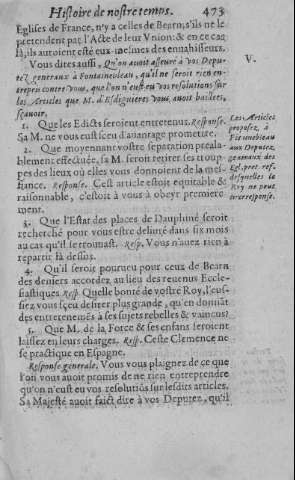 Histoire de nostre temps. 473
Eglises de France, n'y a celles de Bearn, s'ils ne le
pretendent par l'Acte de leur Vnion: & en ce cas
là, ils auroient esté eux-mesmes des enuahisseurs.
Vous dites aussi, Qu'on auoit asseuré à vos Depu-
tez generaux à Fontainebleau, qu'il ne seroit rien en-
trepris contre vous, que l'on n'eust eu vos resolutions sur
les Articles que M. d'Esdiguieres vous auoit baillez,
sçauoir,
V.
1. Que les Edicts seroient entretenus. Response.
Sa M. ne vous eust sceu d'auantage promettre.
2. Que moyennant vostre separation preala-
blement effectuée, sa M. feroit retirer ses troup-
pes des lieux où elles vous donnoient de la mes-
fiance. Response. Cest article estoit equitable &
raisonnable, c'estoit à vous à obeyr premiere
ment.
Les Articles
proposez, à
Fõtainebleau
aux Deputez
generaux des
Egl. pret. ref.
desquelles le
Roy ne peut
tirer response.
3. Que l'Estat des places de Dauphiné seroit
recherché pour vous estre deliuré dans six mois
au cas qu'il se trouuast. Resp. Vous n'auez rien à
repartir là dessus.
4. Qu'il seroit pourueu pour ceux de Bearn
des deniers accordez au lieu des reuenus Eccle-
siastiques Resp. Quelle bonté de vostre Roy, l'eus-
siez vous sçeu desirer plus grande, qu'en donnãt
des entretenemẽs à ses sujets rebelles & vaincus?
5. Que M. de la Force & ses enfans seroient
laissez en leurs charges. Resp. Ceste Clemence ne
se practique en Espagne.
Response generale. Vous vous plaignez de ce que
l'on vous auoit promis de ne rien entreprendre
qu'on n'eust eu vos resolutiõs sur lesdits articles.
Sa Majesté auoit faict dire à vos Deputez, qu'il